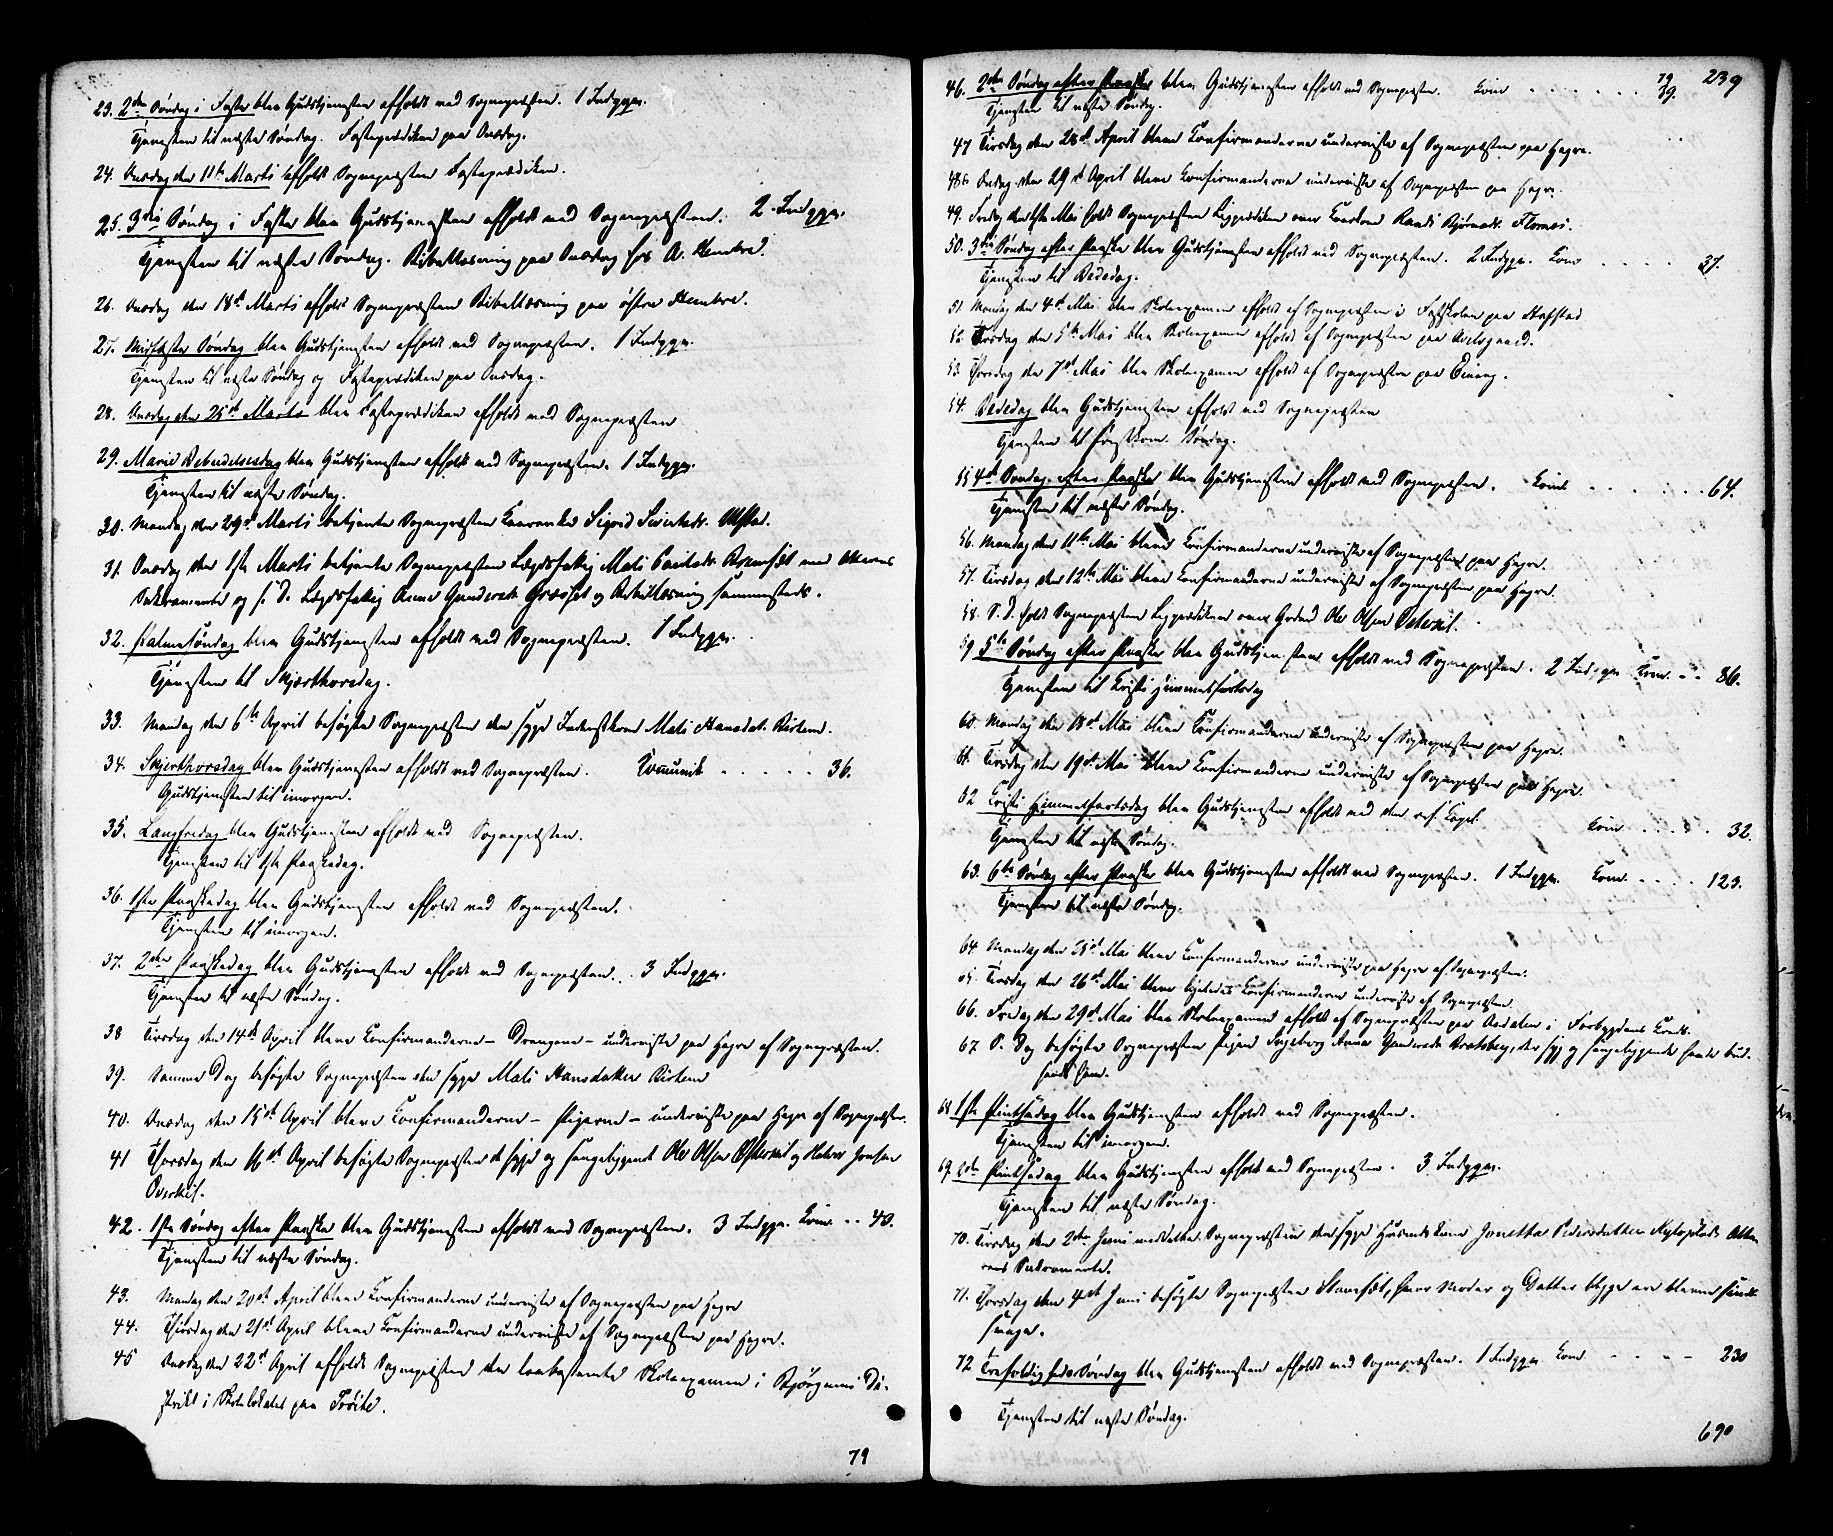 23. 2den Søndag i Faste blev Gudstjenesten afholdt ved Sognepræsten. 1 Indgqn.
Tjenesten til næste Søndag. Fasteprædiken paa Onsdag.
24. Onsdag den 11te Marts afholdt Sognepræsten Fasteprædiken.
25. 3die Søndag i Faste blev Gudstjenesten afholdt ved Sognepræsten. 2 Indgqn.
Tjenesten til næste Søndag. Bibellæsning paa Onsdag hos A. Hembre.
26. Onsdag den 18de Marts afholdt Sognepræsten Bibellæsning paa østre Hembre.
27. Midfaste Søndag blev Gudstjenesten afholdt ved Sognepræsten. 1 Indgqn.
Tjenesten til næste Søndag og Fasteprædiken paa Onsdag.
28. Onsdag den 25de Marts blev Fasteprædiken afholdt ved Sognepræsten
29. Mariæ Bebudelsesdag blev Gudstjenesten afholdt ved Sognepræsten. 1 Indgqn.
Tjenesten til næste Søndag.
30. Mandag den 29de Marts betjente Sognepræsten Sigrid
31. Onsdag den 1ste Marts betjente Sognepræsten Lægdsfattig Mali med Alterens
Sakramente og s. D. Lægdsfattig Græsset og Bibellæsning sammesteds.
32. Palmesøndag blev Gudstjenesten afholdt ved Sognepræsten. 1 Indgqn.
Tjenesten til Skjærthorsdag.
33. Mandag den 6te April besøgte Sognepræsten den syge Mali Hansdat.
34. Skjærthorsdag blev Gudstjenesten afholdt ved Sognepræsten. Comunik . . . . . 36.
Gudstjenesten til imorgen.
35. Langfredag blev Gudstjenesten afholdt ved Sognepræsten.
Tjenesten til 1ste Paaskedag.
36. 1ste Paaskedag blev Gudstjenesten afholdt ved Sognepræsten.
Tjenesten til imorgen.
37. 2den Paaskedag blev Gudstjenesten afholdt ved Sognepræsten. . 3 Indgqn.
Tjenesten til næste Søndag.
38 Tirsdag den 14de April bleve Confirmanderne – Drengene – underviste paa Hegre af Sognepræsten.
39. Samme Dag besøgte Sognepræsten den syge Mali Hansdatter
40. Onsdag den 15de April bleve Confirmanderne – Pigerne – underviste paa Hegre af Sognepræsten.
41 Thorsdag den 16de April besøgte Sognepræsten de syge og sengeliggende Ole Olsen og Jonsen
42. 1ste Søndag efter Paaske blev Gudstjenesten afholdt ved Sognepræsten. 3 Indgqn. Com. . . 43.
Tjenesten til næste Søndag.
43. Mandag den 20de April bleve Confirmanderne underviste af Sognepræsten paa Hegre
44. Tirsdag den 21de April bleve Confirmanderne underviste af Sognepræsten paa Hegre.
45 Onsdag den 22de April afholdt Sognepræsten den Skoleexamen i Bjørgens Di-
strikt i Skolelokalet paa
79
239
79
46. 2den Søndag efter Paaske blev Gudstjenesten afholdt ved Sognepræsten. Com . . . . . . 39.
Tjenesten til næste Søndag.
47 Tirsdag den 28de April bleve Confirmanderne underviste af Sognepræsten paa Hegre.
48. Onsdag den 29de April bleve Confirmanderne underviste af Sognepræsten paa Hegre.
49. Fredag den 1ste Mai holdt Sognepræsten Ligprædiken over Randi Flornes.
50. 3die Søndag efter Paaske blev Gudstjenesten afholdt ved Sognepræsten. 2 Indgqn. Com . . . . . 37.
Tjenesten til Bededag.
51. Mandag den 4de Mai blev Skoleexamen afholdt af Sognepræsten i Fastskolen paa Hofstad
52. Tirsdag den 5te Mai blev Skoleexamen afholdt af Sognepræsten paa
53. Thorsdag den 7de Mai blev Skoleexamen afholdt af Sognepræsten paa Einang.
54. Bededag blev Gudstjenesten afholdt ved Sognepræsten
Tjenesten til førstkom. Søndag.
55 4de Søndag efter Paaske blev Gudstjenesten afholdt ved Sognepræsten. Comk . . . . . . 64.
Tjenesten til næste Søndag.
56. Mandag den 11te Mai bleve Confirmanderne underviste af Sognepræsten paa Hegre.
57. Tirsdag den 12te Mai bleve Confirmanderne underviste af Sognepræsten paa Hegre.
58. S. D. holdt Sognepræsten Ligprædiken over Ole Olsen
59 5te Søndag efter Paaske blev Gudstjenesten afholdt ved Sognepræsten. 2 Indgqn Com. . . 86.
Tjenesten til Kristi Himmelfartsdag
60. Mandag den 18de Mai bleve Confirmanderne underviste af Sognepræsten paa Hegre.
61. Tirsdag den 19de Mai bleve Confirmanderne underviste af Sognepræsten paa Hegre.
62 Kristi Himmelfartsdag blev Gudstjenesten afholdt ved den res. Capel. Com . . . . . 32.
Tjenesten til næste Søndag.
63. 6te Søndag efter Paaske blev Gudstjenesten afholdt ved Sognepræsten. 1 Indgqn. Com. . . . . 123.
Tjenesten til næste Søndag.
64. Mandag den 25de Mai bleve Confirmanderne underviste paa Hegre af Sognepræsten.
65. Tirsdag den 26de Mai bleve ligeledes Confirmanderne underviste af Sognepræsten.
66. Fredag den 29de Mai blev Skoleexamen afholdt af Sognepræsten paa i Forbygdens Kreds.
67 S. Dag besøgte Sognepræsten Pigen Ingeborg Anna der syg og sengeliggende havde bud-
sendt ham.
68 1ste Pintsedag blev Gudstjenesten afholdt ved Sognepræsten.
Tjenesten til imorgen.
69. 2den Pintsedag blev Gudstjenesten afholdt ved Sognepræsten. 3 Indgqn.
Tjenesten til næste Søndag.
70. Tirsdag den 2den Juni meddelte Sognepræsten den syge Jonetta Pedersdatter Alte-
rens Sakramente.
71. Thorsdag den 4de Juni besøgte Sognepræsten hvor Moder og Datter begge ere blevne
svage.
72 Trefoldigheds Søndag blev Gudstjenesten afholdt ved Sognepræsten. 1 Indgqn Com – – – – 230
Tjenesten til næste Søndag.
690